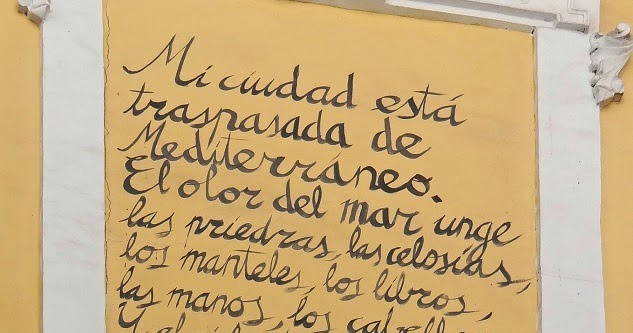 Mi ciudad está
traspasada de
Mediterráneo.
El olor del mar unge
las priedras, las celosías,
los manteles, los libros,
las manos, los